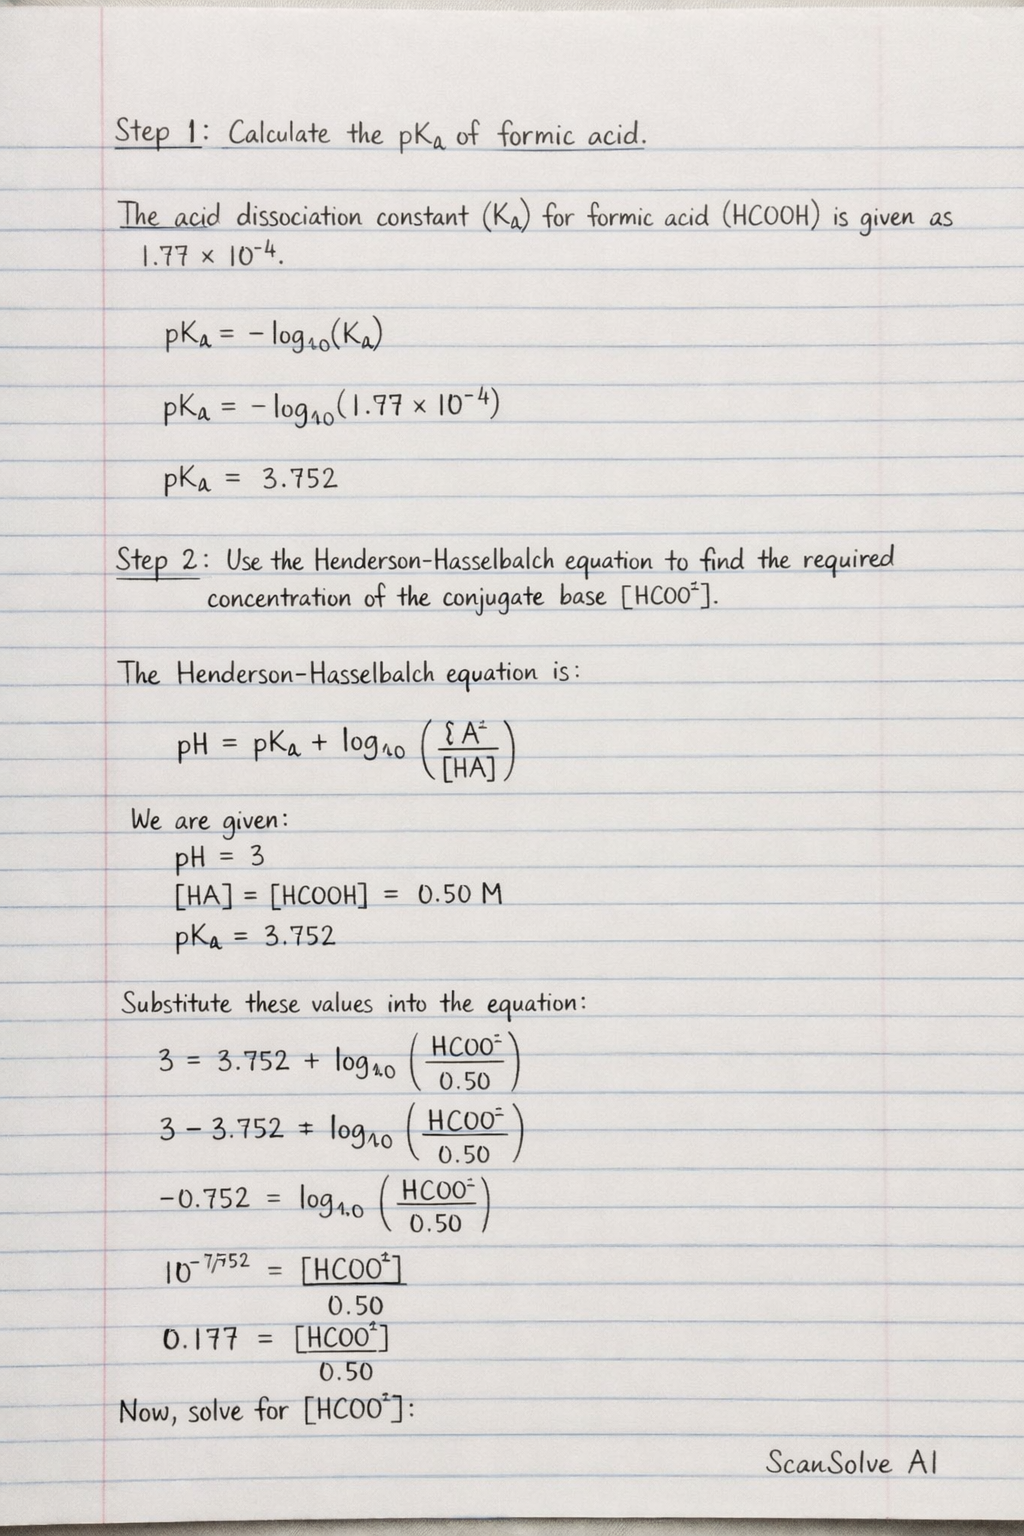 Step 1: Calculate the pKₐ of formic acid.
The acid dissociation constant (Kₐ) for formic acid (HCOOH) is given as
1.77 × 10⁻⁴.
pKₐ = −log₁₀(Kₐ)
pKₐ = −log₁₀(1.77 × 10⁻⁴)
pKₐ = 3.752
Step 2: Use the Henderson-Hasselbalch equation to find the required
concentration of the conjugate base [HCOO⁻].
The Henderson-Hasselbalch equation is:
pH = pKₐ + log₁₀ ({A⁻ / [HA])
We are given:
pH = 3
[HA] = [HCOOH] = 0.50 M
pKₐ = 3.752
Substitute these values into the equation:
3 = 3.752 + log₁₀ (HCOO⁻ / 0.50)
3 − 3.752 = log₁₀ (HCOO⁻ / 0.50)
−0.752 = log₁.₀ (HCOO⁻ / 0.50)
10 = [HCOO⁻] / 0.50
0.177 = [HCOO⁻] / 0.50
Now, solve for [HCOO⁻]:
ScanSolve AI